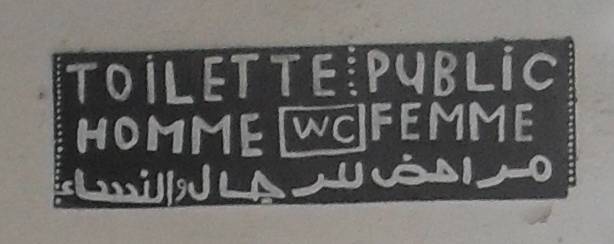 TOiLETTE PUBLiC
HOMME WC FEMME
مراحض للرجال والنساء